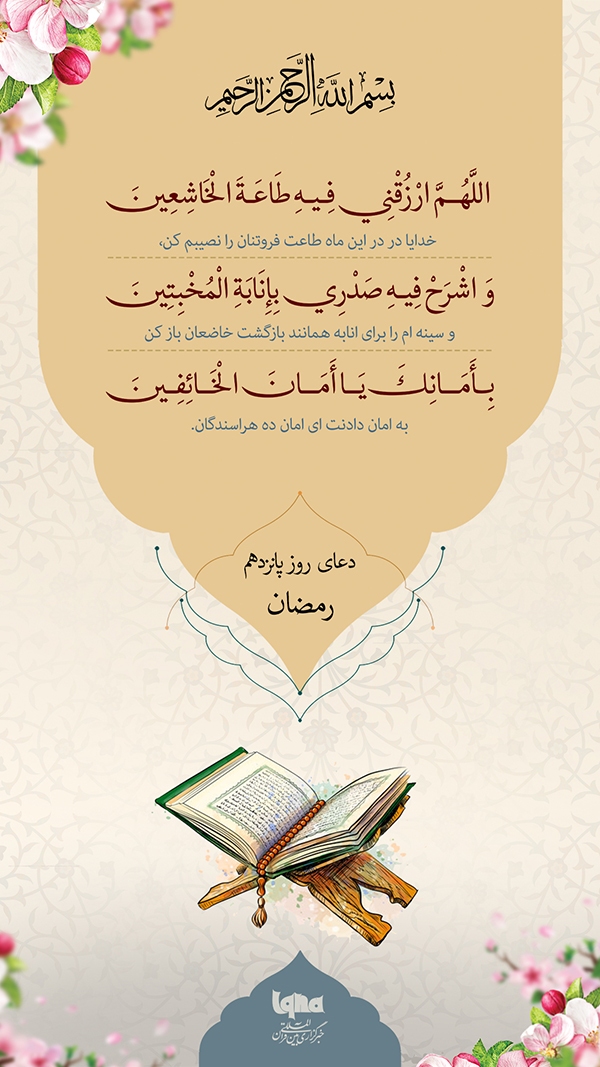 بِسْمِ اللَّهِ الرَّحْمَٰنِ الرَّحِيمِ
اللَّهُمَّ ارْزُقْنِي فِيهِ طَاعَةَ الْخَاشِعِينَ
خدایا در در این ماه طاعت فروتنان را نصیبم کن،
وَ اشْرَحْ فِيهِ صَدْرِي بِإِنَابَةِ الْمُخْبِتِينَ
و سینه ام را برای انابه همانند بازگشت خاضعان باز کن
بِأَمَانِكَ يَا أَمَانَ الْخَائِفِينَ
به امان دادنت ای امان ده هراسندگان.
دعای روز پانزدهم
رمضان
iqna
خبرگزاری بین المللی قرآن